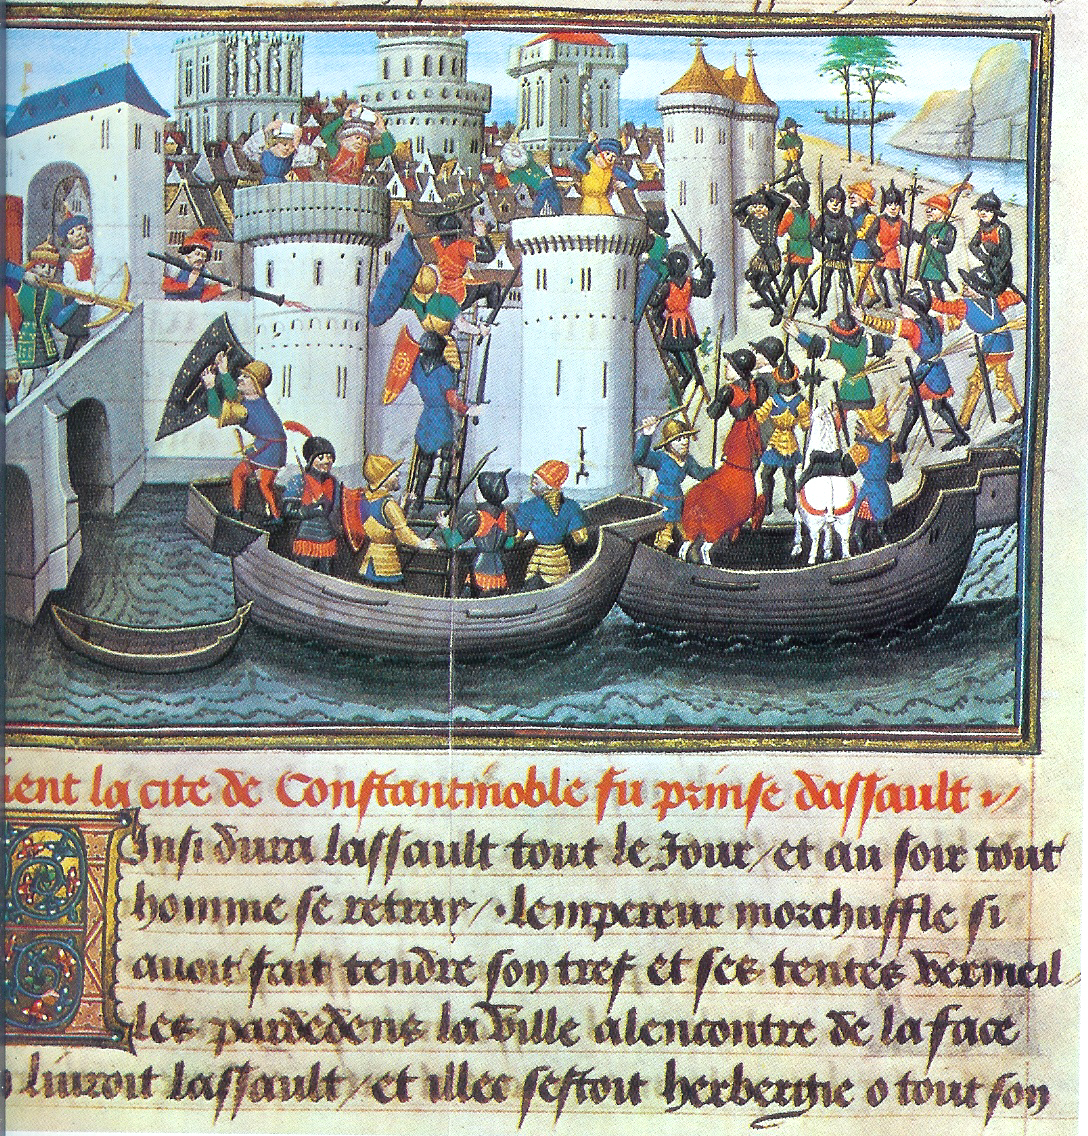 ient la cite de Constantinoble fu prinse dassault
Ainsi dura lassault tout le Jour / et au soir tout
homme se retray / . lempereur morchuffle si
auoit fait tendre son tref et ses tentes vermeil
les pardedens la ville alencontre de la face
liuroit lassault / et illec sestoit herbergie o tout son